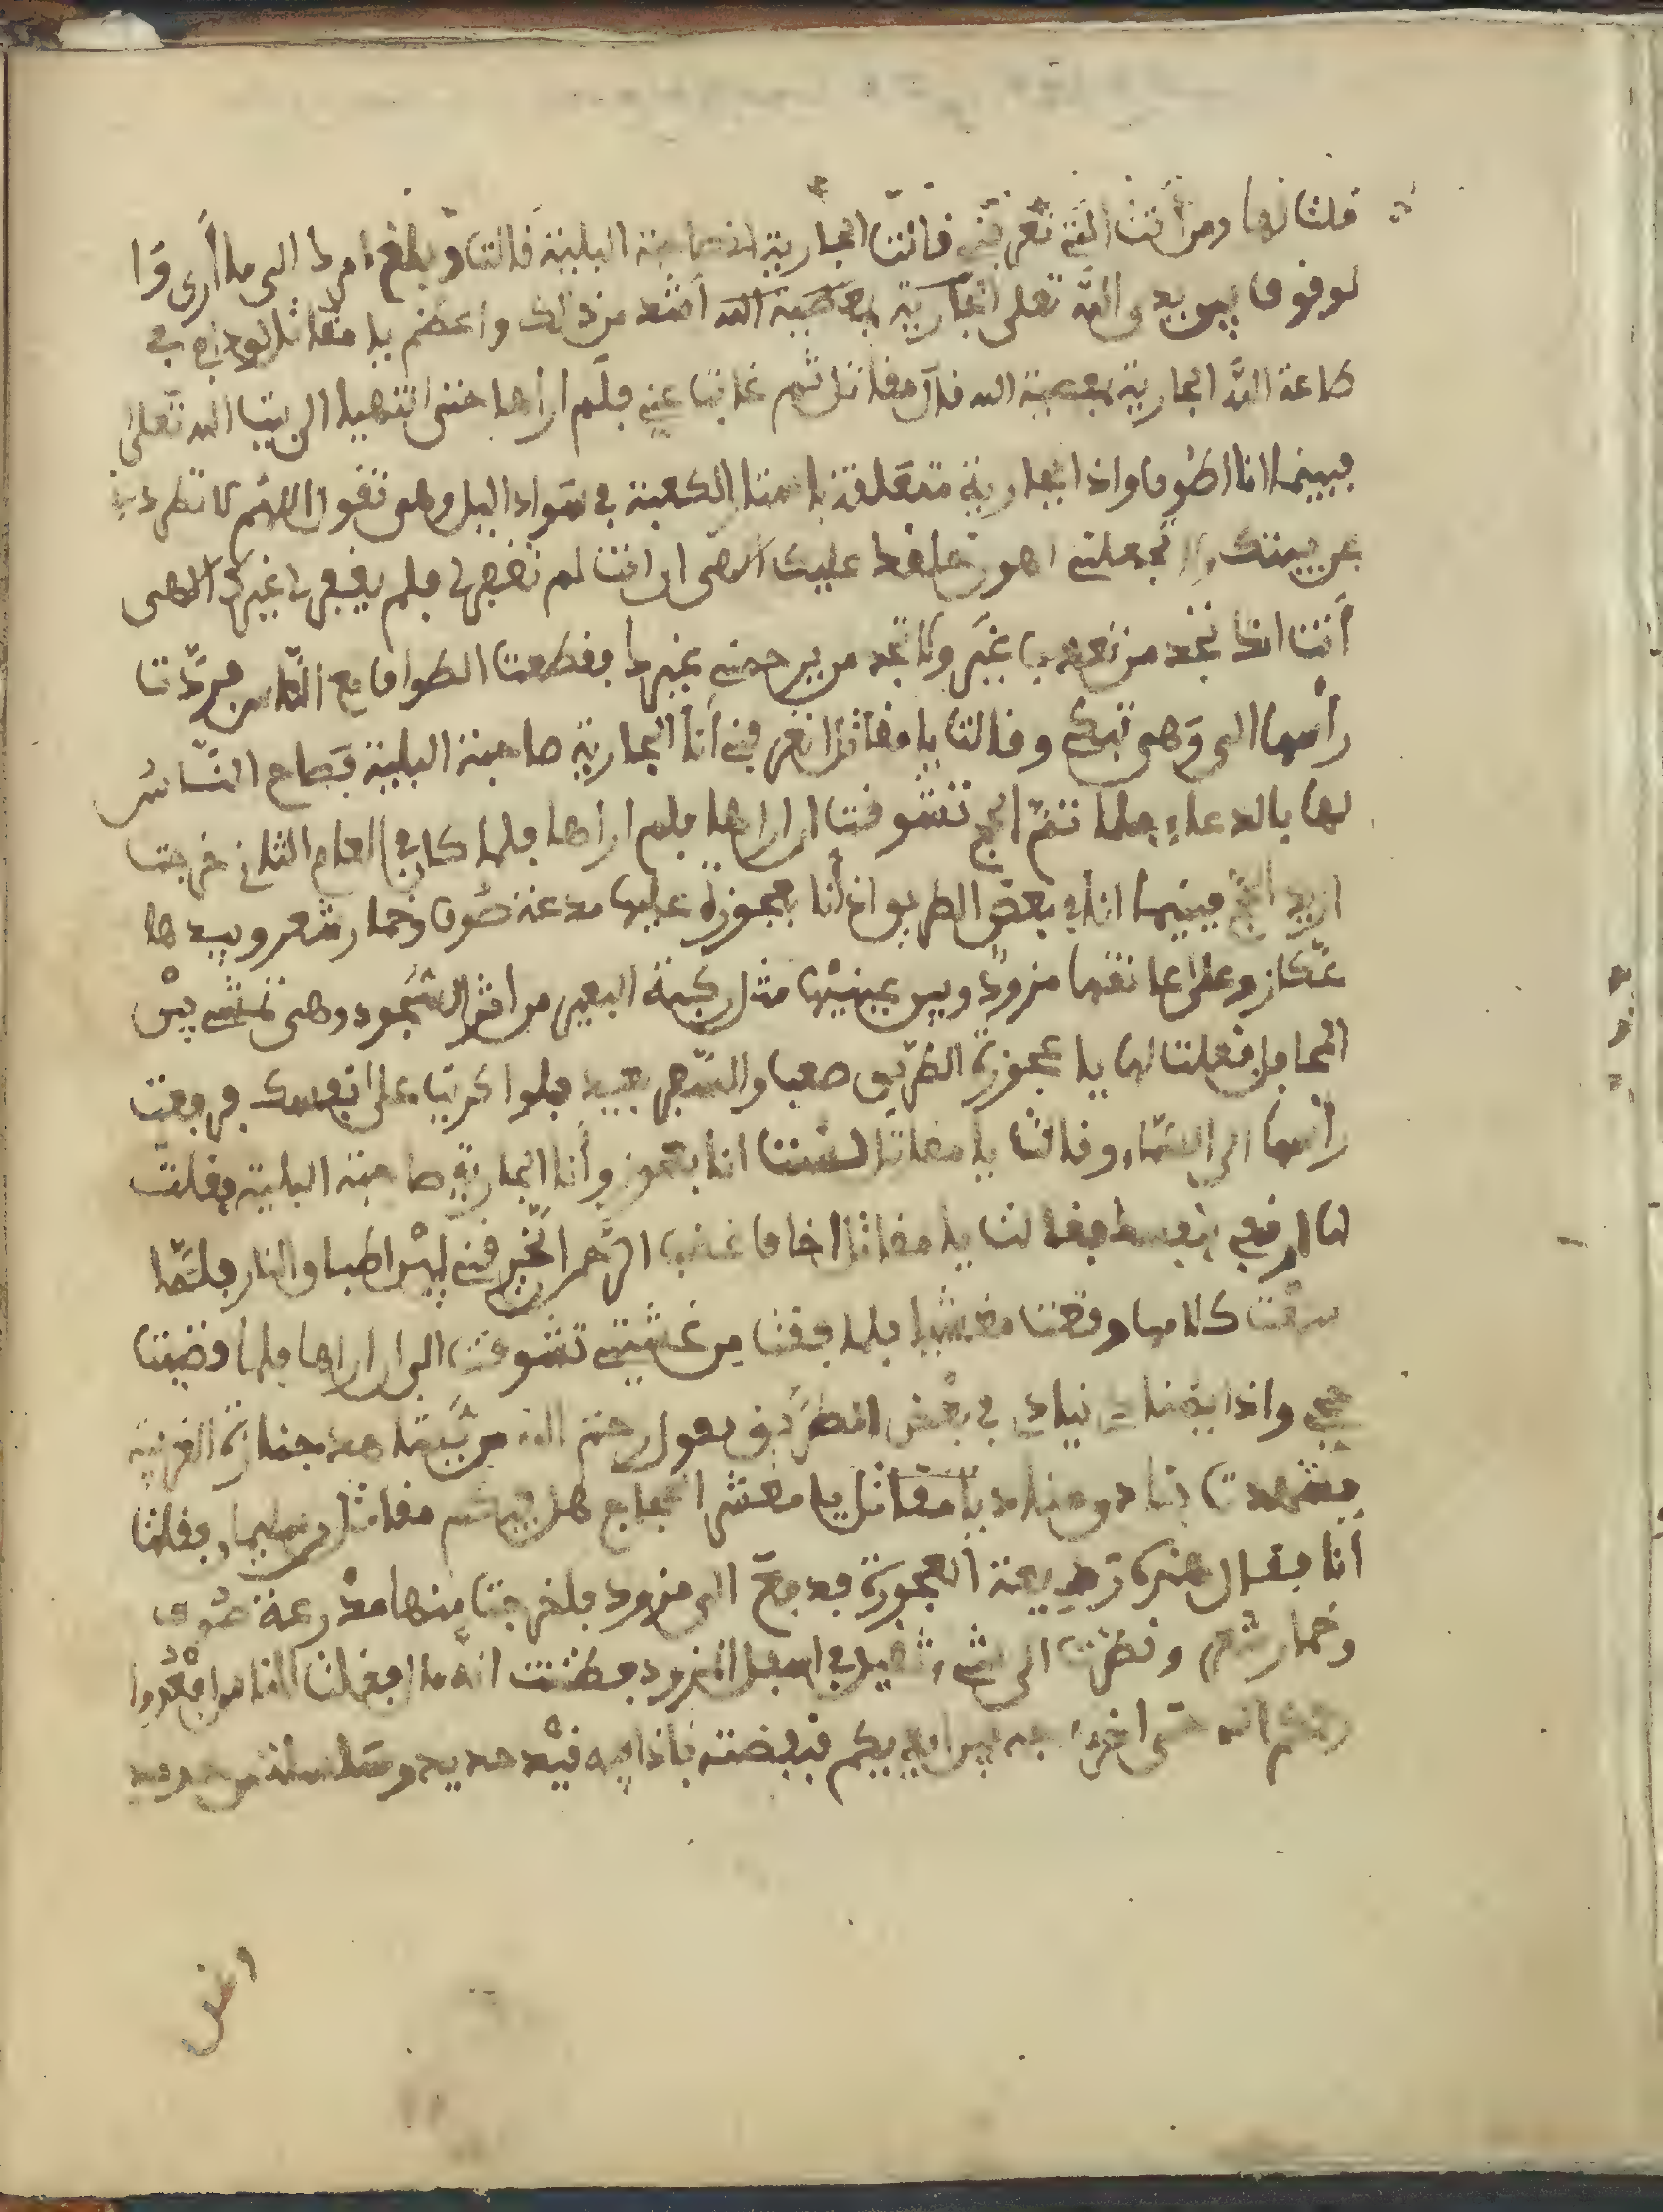 فلت لها ومن أنت التي تعرفني فالت الجارية انا صاحبة البلية فالت وبلغ امرك الى ما أرى
لوفوف بين يدي الله تعلى الجارية بمعصية الله أشد من ذلك واعظم يا مفاتل
طاعة الله الجارية بمعصية الله فال مفاتل ثم غابت عني فلم اراها حتى انتهيا الى بيت الله تعلى
فبينما انا اطوف واذا بجارية متعلفة باستار الكعبة في سواد اليل وهي تفول اللهم لا تطردني
عن بيتك ولا تجعلني اهون خلفك عليك الاهي ان انت لم تغفر لي فلم يغفر لي غيرك الاهي
أنت اذا تجد من تعذب غير ولا تجد من يرحمني غيرك ففطعت الطواف مع الناس فردت
رأسها الي وهي تبكي وفالت يا مفاتل اتعرفني أنا الجارية صاحبة البلية فصاح الناس
لها بالدعاء فلما تم الحج تشوفت الى اراها فلم اراها فلما كان في العام الثاني خرجت
اريد الحج فبينما انا في بعض الطريق اذ أنا بعجوزة عليها مدعة صوف وخمار شعر وبيدها
عكاز وعلى عاتفها مزود وبين عينيها مثل ركبة البعير من اثر السجود وهي تمشي بين
المحامل ففلت لها يا عجوزة الطريق صعب والسفر بعيد فلوا كريت على نفسك فرفعت
رأسها الى السماء وفالت يا مفاتل لست انا بعجوز وأنا الجارية صاحبة البلية ففلت
لها ارفعي بنفسك ففالت يا مفاتل اخاف غضب الرحمن اتخبرفني لهب اطباف النار فلما
سمعت كلامها وفعت مغشيا فلما ففت من غشيتي تشوفت الى ان اراها فلما فضيت
حجي واذا بمناد ينادي في بعض الطريق يفول رحم الله من شيعنا هذه جنازة الغريبة
فشهدت ينادي مناد يا مفاتل يا معشر الحجاج هل فيكم مفاتل بن سليمان ففلت
أنا ففال عندك وديعة العجوزة فدفع الي مزود فاخرجت منها مدرعة صوف
وخمار شعر ونظرت الى شيء ثفيل في اسفل المزود فظننت انه مال ففلنا الناس افعدوا
رحمكم الله حتى اخرجه بين ايديكم فبفضته فاذا فيه فيد حديد وسلسلة من حديد